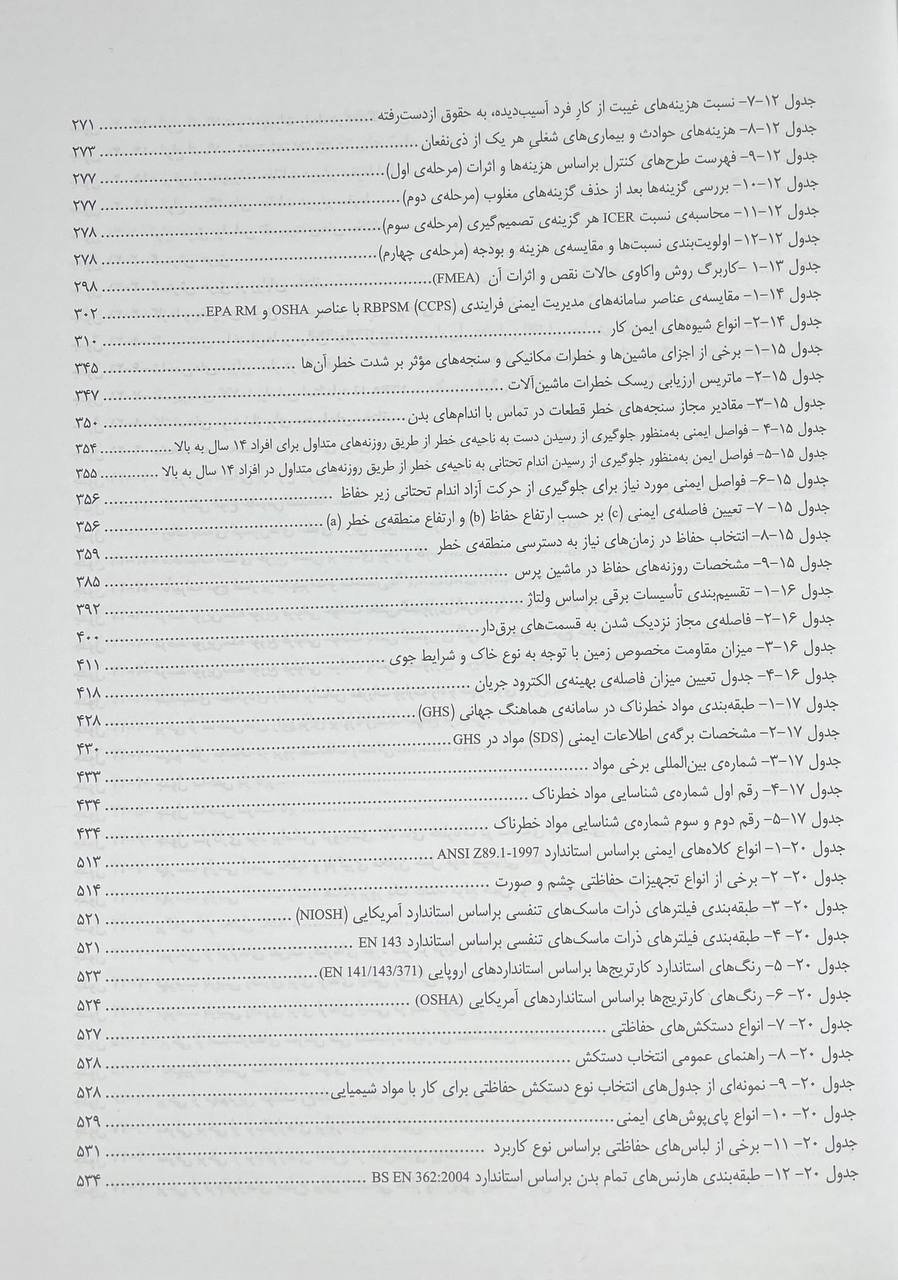 جدول ۱۲-۷- نسبت هزینه‌های غیبت از کارِ فرد آسیب‌دیده، به حقوق ازدست‌رفته ........................................ ۲۷۱
جدول ۱۲-۸- هزینه‌های حوادث و بیماری‌های شغلیِ هر یک از ذی‌نفعان ........................................ ۲۷۳
جدول ۱۲-۹- فهرست طرح‌های کنترل براساس هزینه‌ها و اثرات (مرحله‌ی اول) ........................................ ۲۷۷
جدول ۱۲-۱۰- بررسی گزینه‌ها بعد از حذف گزینه‌های مغلوب (مرحله‌ی دوم) ........................................ ۲۷۷
جدول ۱۲-۱۱- محاسبه‌ی نسبت ICER هر گزینه‌ی تصمیم‌گیری (مرحله‌ی سوم) ........................................ ۲۷۸
جدول ۱۲-۱۲- اولویت‌بندی نسبت‌ها و مقایسه‌ی هزینه و بودجه (مرحله‌ی چهارم) ........................................ ۲۷۸
جدول ۱۳-۱ -کاربرگ روش واکاوی حالات نقص و اثرات آن (FMEA) ........................................ ۲۹۸
جدول ۱۴-۱- مقایسه‌ی عناصر سامانه‌های مدیریت ایمنی فرایندی RBPSM (CCPS) با عناصر OSHA و EPA RM .................... ۳۰۲
جدول ۱۴-۲- انواع شیوه‌های ایمن کار ........................................ ۳۱۰
جدول ۱۵-۱- برخی از اجزای ماشین‌ها و خطرات مکانیکی و سنجه‌های مؤثر بر شدت خطر آن‌ها .............................. ۳۴۵
جدول ۱۵-۲- ماتریس ارزیابی ریسک خطرات ماشین‌آلات ........................................ ۳۴۷
جدول ۱۵-۳- مقادیر مجاز سنجه‌های خطر قطعات در تماس با اندام‌های بدن ........................................ ۳۵۰
جدول ۱۵-۴ - فواصل ایمنی به‌منظور جلوگیری از رسیدن دست به ناحیه‌ی خطر از طریق روزنه‌های متداول برای افراد ۱۴ سال به بالا ............... ۳۵۴
جدول ۱۵-۵- فواصل ایمن به‌منظور جلوگیری از رسیدن اندام تحتانی به ناحیه‌ی خطر از طریق روزنه‌های متداول در افراد ۱۴ سال به بالا ............ ۳۵۵
جدول ۱۵-۶- فواصل ایمنی مورد نیاز برای جلوگیری از حرکت آزاد اندام تحتانی زیر حفاظ ........................................ ۳۵۶
جدول ۱۵- ۷- تعیین فاصله‌ی ایمنی (c) بر حسب ارتفاع حفاظ (b) و ارتفاع منطقه‌ی خطر (a) ........................................ ۳۵۶
جدول ۱۵-۸- انتخاب حفاظ در زمان‌های نیاز به دسترسی منطقه‌ی خطر ........................................ ۳۵۹
جدول ۱۵-۹- مشخصات روزنه‌های حفاظ در ماشین پرس ........................................ ۳۸۵
جدول ۱۶-۱- تقسیم‌بندی تأسیسات برقی براساس ولتاژ ........................................ ۳۹۲
جدول ۱۶-۲- فاصله‌ی مجاز نزدیک شدن به قسمت‌های برق‌دار ........................................ ۴۰۰
جدول ۱۶-۳- میزان مقاومت مخصوص زمین با توجه به نوع خاک و شرایط جوی ........................................ ۴۱۱
جدول ۱۶-۴- جدول تعیین میزان فاصله‌ی بهینه‌ی الکترود جریان ........................................ ۴۱۸
جدول ۱۷-۱- طبقه‌بندی مواد خطرناک در سامانه‌ی هماهنگ جهانی (GHS) ........................................ ۴۲۸
جدول ۱۷-۲- مشخصات برگه‌ی اطلاعات ایمنی (SDS) مواد در GHS ........................................ ۴۳۰
جدول ۱۷-۳- شماره‌ی بین‌المللی برخی مواد ........................................ ۴۳۳
جدول ۱۷-۴- رقم اول شماره‌ی شناسایی مواد خطرناک ........................................ ۴۳۴
جدول ۱۷-۵- رقم دوم و سوم شماره‌ی شناسایی مواد خطرناک ........................................ ۴۳۴
جدول ۲۰-۱- انواع کلاه‌های ایمنی براساس استاندارد ANSI Z89.1-1997 ........................................ ۵۱۳
جدول ۲۰- ۲- برخی از انواع تجهیزات حفاظتی چشم و صورت ........................................ ۵۱۴
جدول ۲۰- ۳- طبقه‌بندی فیلترهای ذرات ماسک‌های تنفسی براساس استاندارد آمریکایی (NIOSH) .............................. ۵۲۱
جدول ۲۰- ۴- طبقه‌بندی فیلترهای ذرات ماسک‌های تنفسی براساس استاندارد EN 143 ........................................ ۵۲۱
جدول ۲۰- ۵- رنگ‌های استاندارد کارتریج‌ها براساس استانداردهای اروپایی (EN 141/143/371) .............................. ۵۲۳
جدول ۲۰- ۶- رنگ‌های کارتریج‌ها براساس استانداردهای آمریکایی (OSHA) ........................................ ۵۲۴
جدول ۲۰- ۷- انواع دستکش‌های حفاظتی ........................................ ۵۲۷
جدول ۲۰- ۸- راهنمای عمومی انتخاب دستکش ........................................ ۵۲۸
جدول ۲۰- ۹- نمونه‌ای از جدول‌های انتخاب نوع دستکش حفاظتی برای کار با مواد شیمیایی .............................. ۵۲۸
جدول ۲۰- ۱۰- انواع پای‌پوش‌های ایمنی ........................................ ۵۲۹
جدول ۲۰- ۱۱- برخی از لباس‌های حفاظتی براساس نوع کاربرد ........................................ ۵۳۱
جدول ۲۰- ۱۲- طبقه‌بندی هارنس‌های تمام بدن براساس استاندارد BS EN 362:2004 ........................................ ۵۳۴